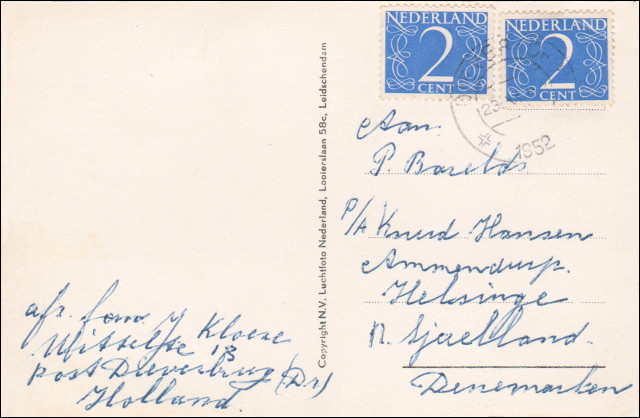 NEDERLAND
2
CENT
NEDERLAND
2
CENT
23
1952
Aan
P. Barelds
P/A Knud Hansen
Ammendrup.
Helsinge
N. Sjaelland.
Denemarken
Copyright N.V. Luchtfoto Nederland, Looierslaan 58c, Leidschendam
afz. fam. J Kloeze
Wittelte 13
post Dieverbrug (Dr)
Holland.